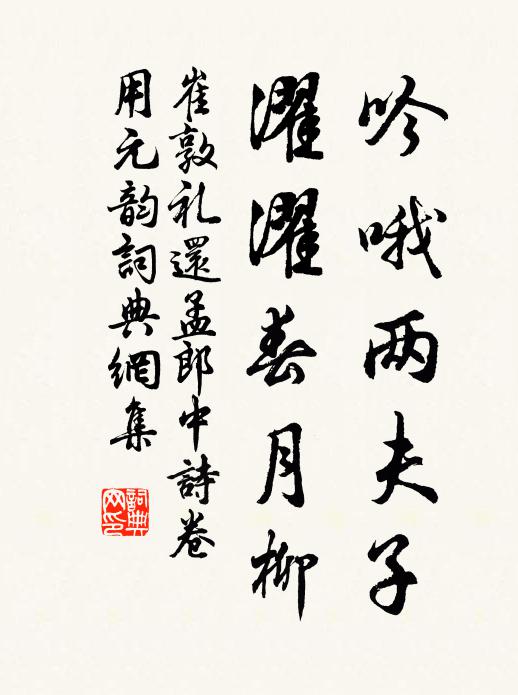 吟哦两夫子
濯濯春月柳
崔敦礼還孟郎中詩卷
用元韵詞典網集
詞典網印